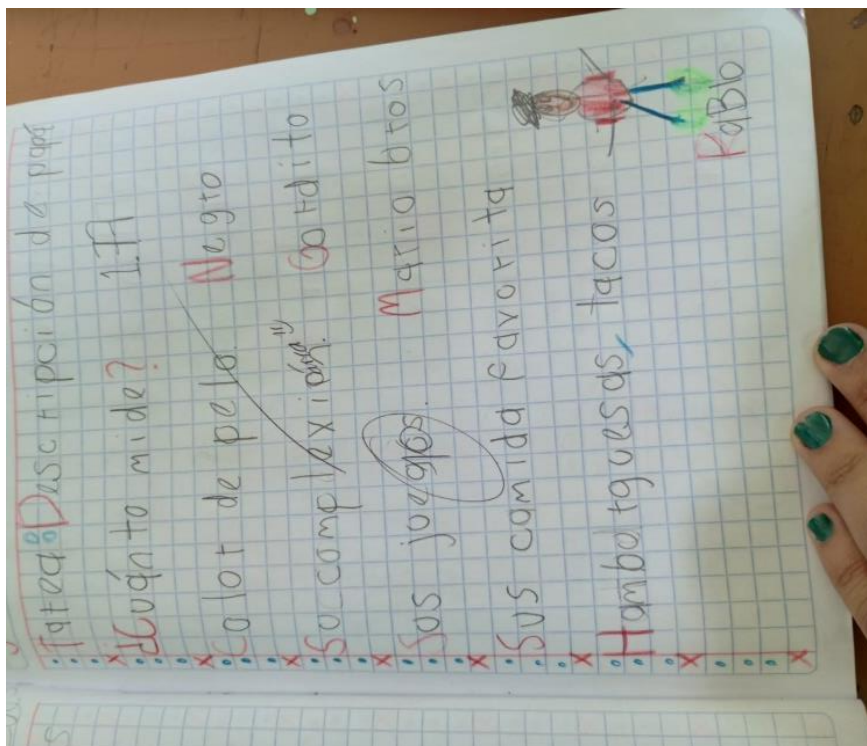 Tarea: Descripción de papá
¿Cuánto mide? 1.77
Color de pelo. Negro
Su complexión. Gordito
Sos joegos. Mario bros
Sus comida favorita
Hamborguesas, tacos
Pablo